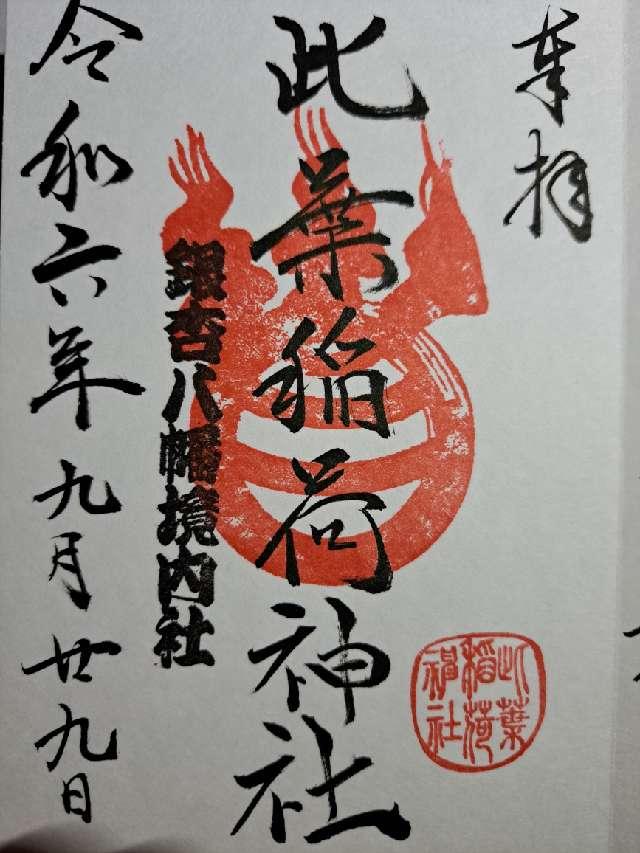 奉拝
此葉稲荷神社
此葉
稲荷
神社
銀杏八幡境内社
令和六年九月廿九日